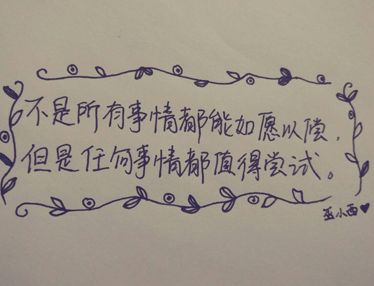 不是所有事情都能如愿以偿，
但是任何事情都值得尝试。
巫小西